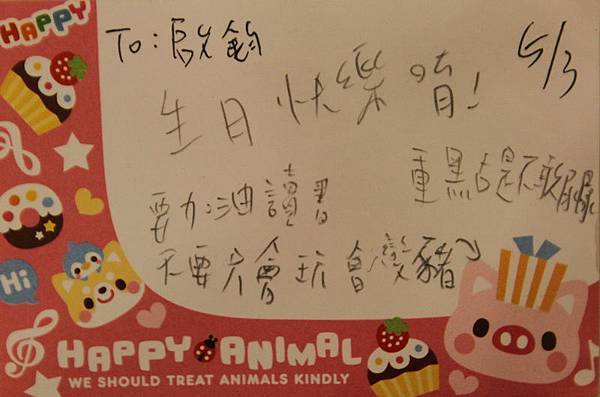 HAPPY
To: 啟鈞
5/3
生日快樂唷!
要加油讀書
重點是不要
不要只會玩 會變豬
Hi
HAPPY ANIMAL
WE SHOULD TREAT ANIMALS KINDLY